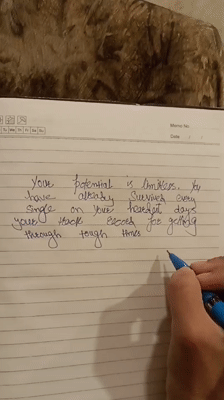 Memo No.
Date
Your potential is limitless. You
have already survives every
single on your hardest days
your for going
through tough times